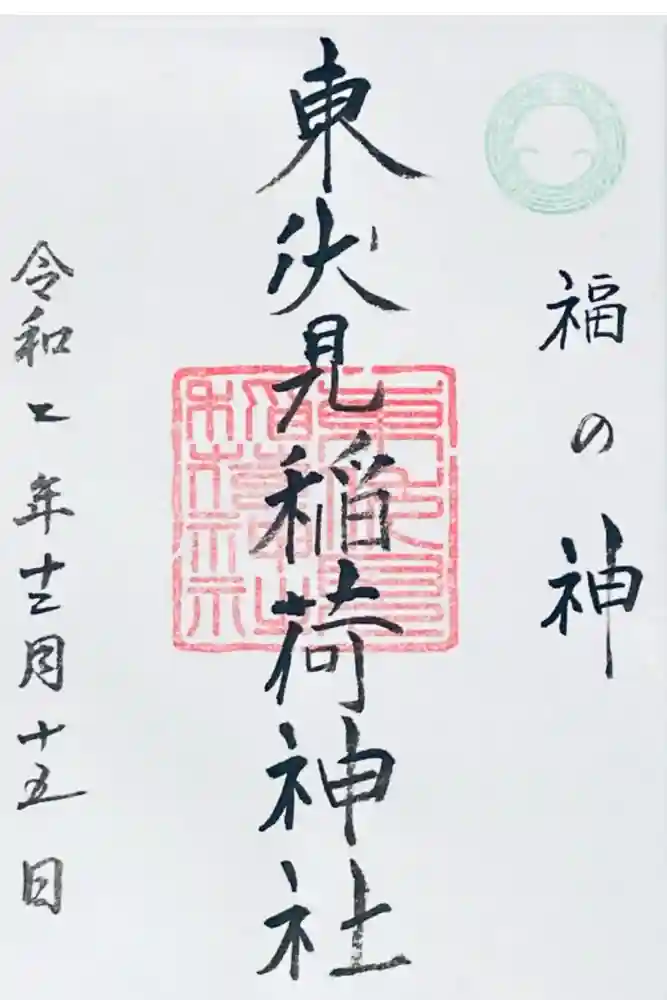 福の神
東伏見稲荷神社
令和二年十二月十五日